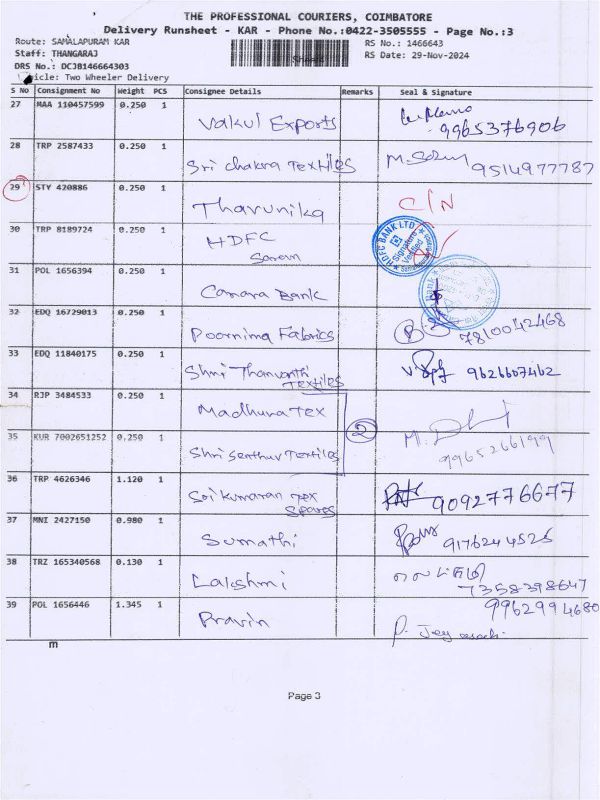 THE PROFESSIONAL COURIERS, COIMBATORE
Delivery Runsheet - KAR - Phone No.:0422-3505555 - Page No.:3
Route: SAMALAPURAM KAR RS No.: 1466643
Staff: THANGARAJ RS Date: 29-Nov-2024
DRS No.: DCJB146664303
icle: Two Wheeler Delivery
S No Consignment No Weight PCS Consignee Details Remarks Seal & Signature
27 MAA 110457599 0.250 1 Vakul Exports
9965376906
28 TRP 2587433 0.250 1 Sri Chakra Textiles 9514977787
29 STY 420886 0.250 1 Tharunika C/N
30 TRP 8189724 0.250 1 HDFC
Saran
HDFC BANK LTD
Signature Verified
31 POL 1656394 0.250 1 Canara Bank
Bank
32 EDQ 16729013 0.250 1 Poornima Fabrics 7810042468
33 EDQ 11840175 0.250 1 Shri Thanvanthi
Textiles 9626607462
34 RJP 3484533 0.250 1 Madhura Tex
2
35 KUR 7002651252 0.250 1 Shri Senthur Textiles 9965266199
36 TRP 4626346 1.120 1 Sri Kumaran Tex
Spares 9092776677
37 MNI 2427150 0.980 1 Sumathi 9176244525
38 TRZ 165340568 0.130 1 Lakshmi
7358398647
39 POL 1656446 1.345 1 Pravin 9962994680
m
Page 3